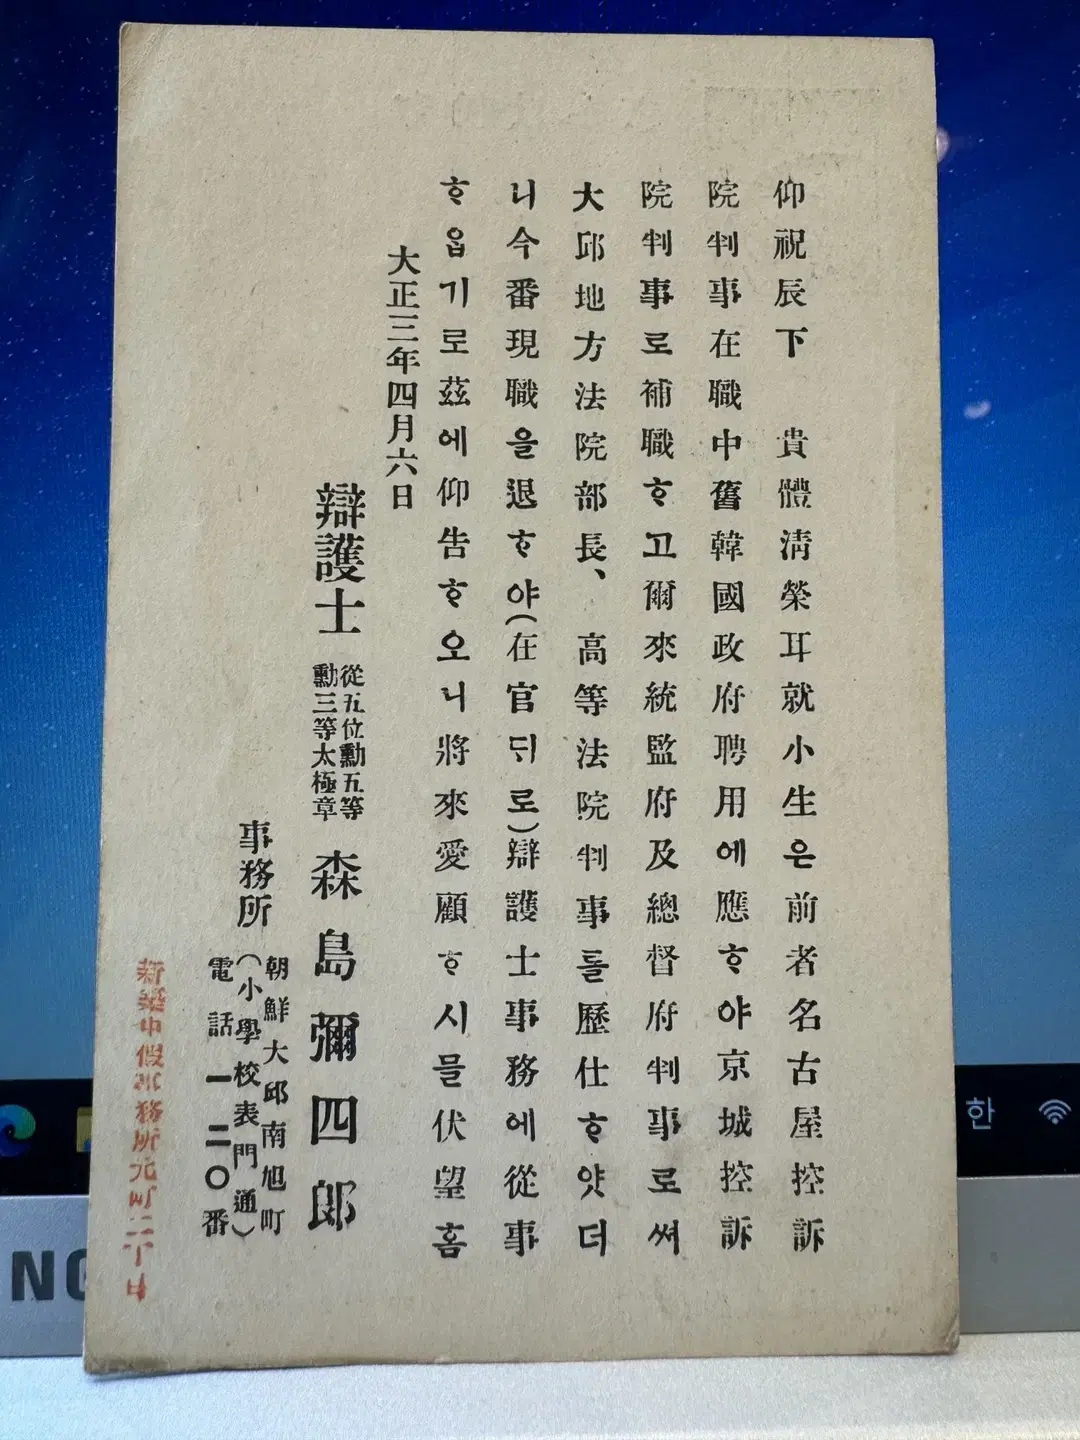 仰祝辰下 貴體淸榮耳就小生은前者名古屋控訴
院判事在職中舊韓國政府聘用에應ᄒᆞ야京城控訴
院判事로補職ᄒᆞ고爾來統監府及總督府判事로써
大邱地方法院部長、高等法院判事를歷仕ᄒᆞ얏더
니今番現職을退ᄒᆞ야(在官뒤로)辯護士事務에從事
ᄒᆞ읍기로玆에仰告ᄒᆞ오니將來愛顧ᄒᆞ시믈伏望홈
大正三年四月六日
辯護士 從五位勳五等
勳三等太極章
森島彌四郞
事務所
朝鮮大邱南旭町
(小學校表門通)
電話一二〇番
新築中假事務所元町二丁
한
NG